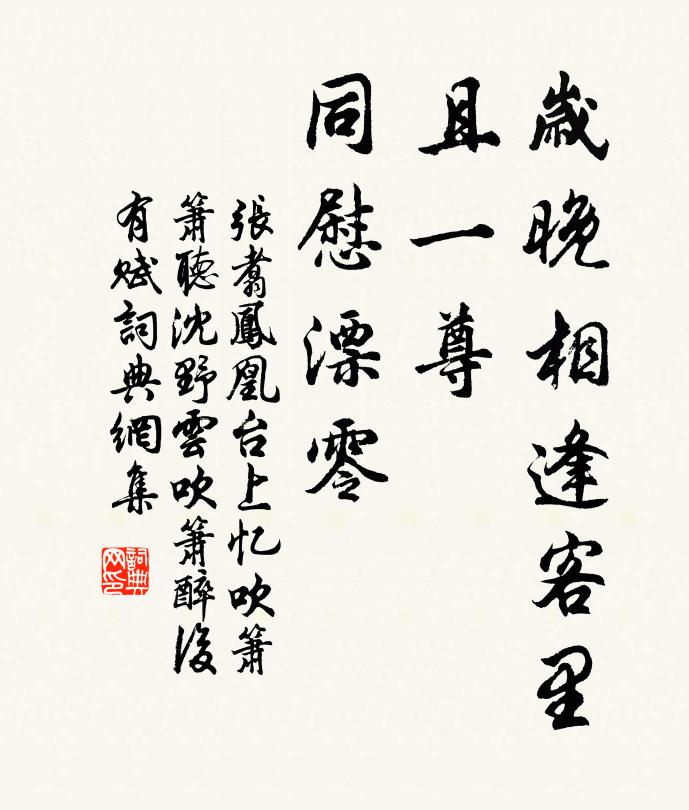 歲晚相逢客里
且一尊
同慰漂零
張翥鳳凰台上忆吹簫
簫聽沈野雲吹簫醉後
有賦詞典網集
詞典网印